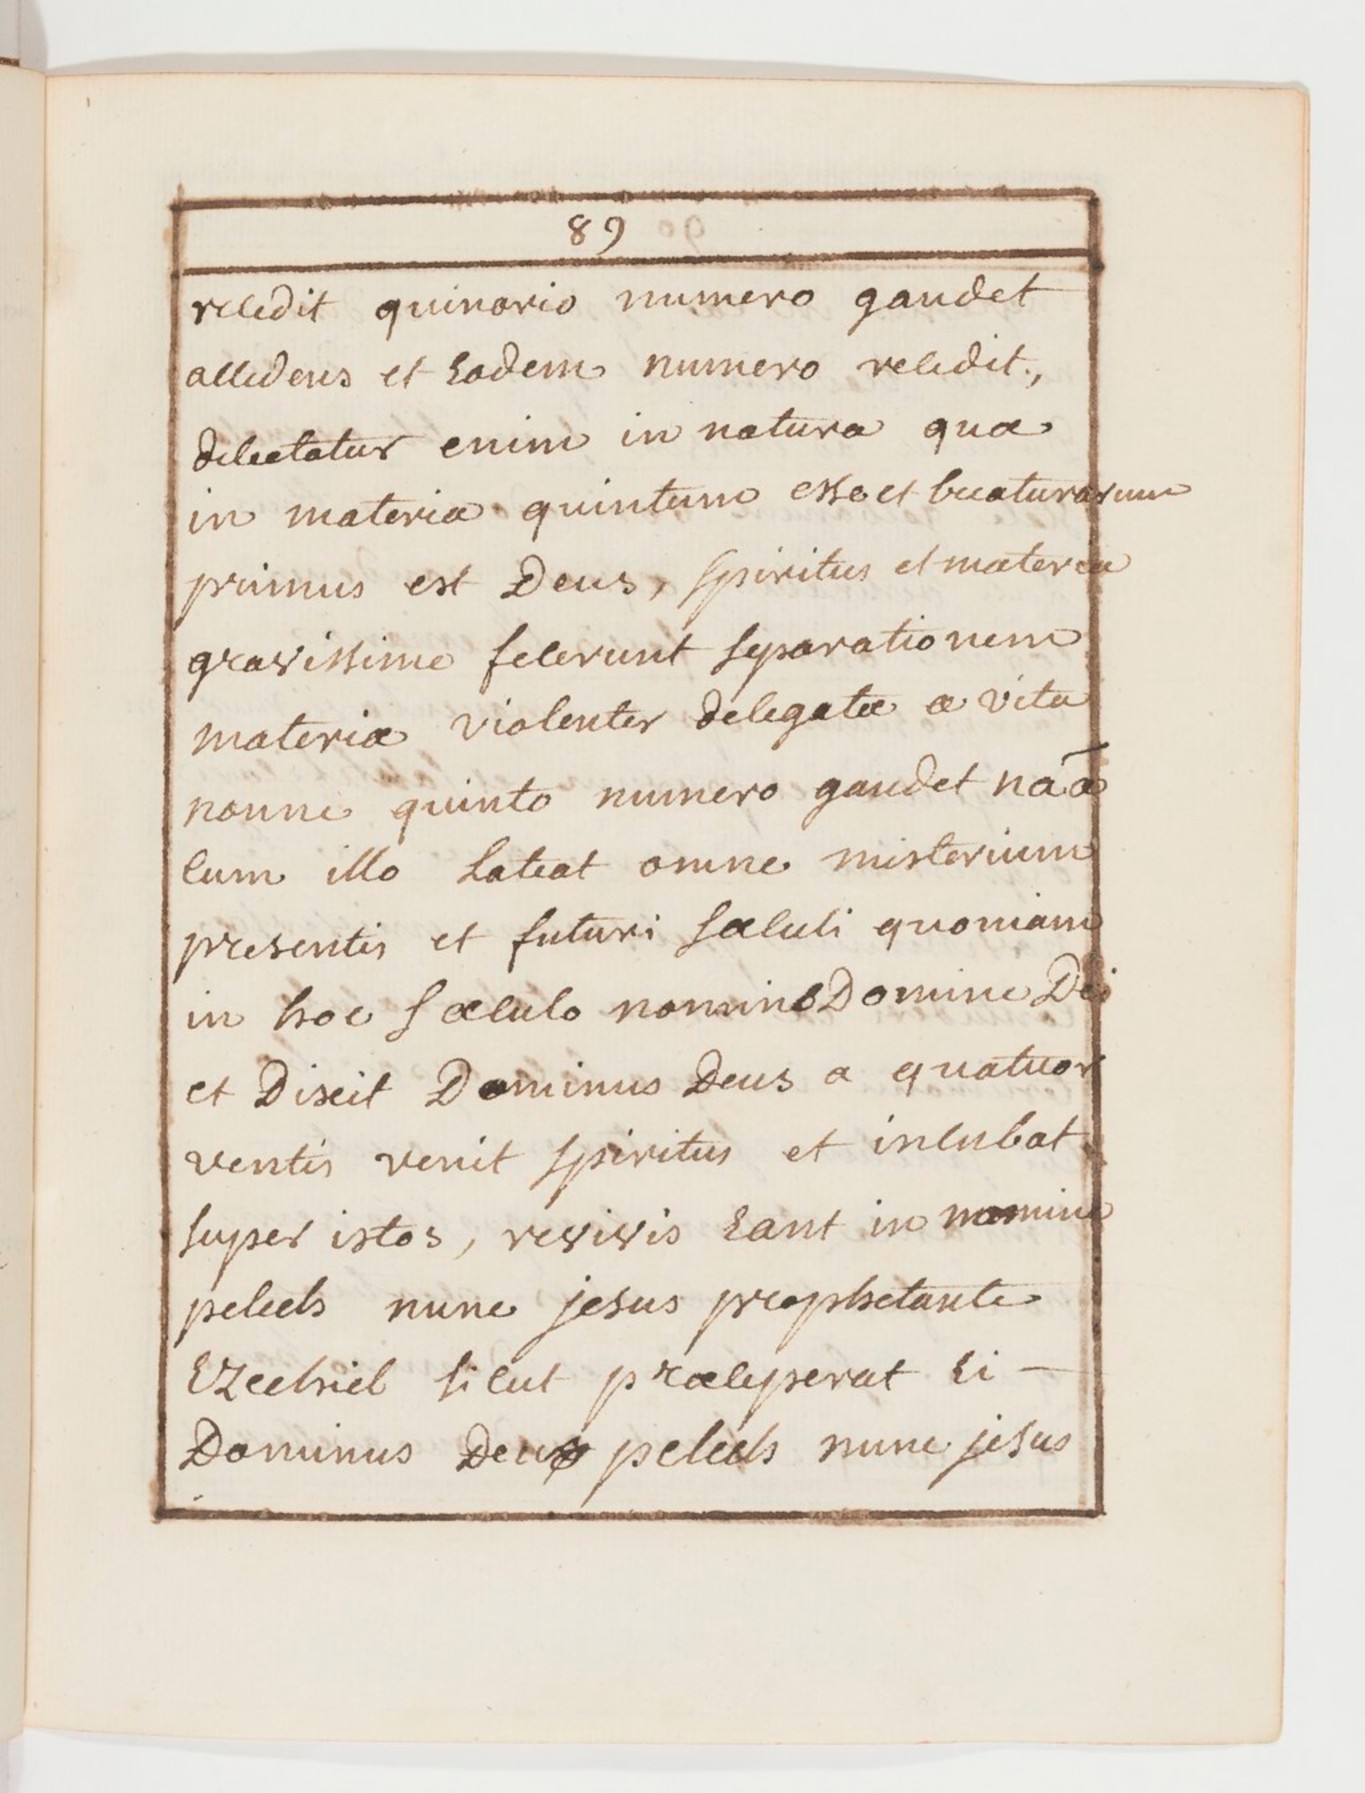 89
recedit quinario numero gaudet
accedens et Eodem numero recedit.,
delectatur enim in natura quæ
in materia quintum esse et beaturarum
primus est Deus, spiritus et materia
gravissime fecerunt separationem
materiæ violenter delegatæ a vita
nonne quinto numero gaudet nāā
cum illo Lateat omne misterium
presentis et futuri sæculi quoniam
in hoc sæculo nomine Domine Dei
et Dixit Dominus Deus a quatuor
ventis venit spiritus et incubat
super istos, revivis Eant in nomine
pelech nunc jesus prophetante
Ezechiel sicut præceperat Ei —
Dominus Deus pelech nunc jesus